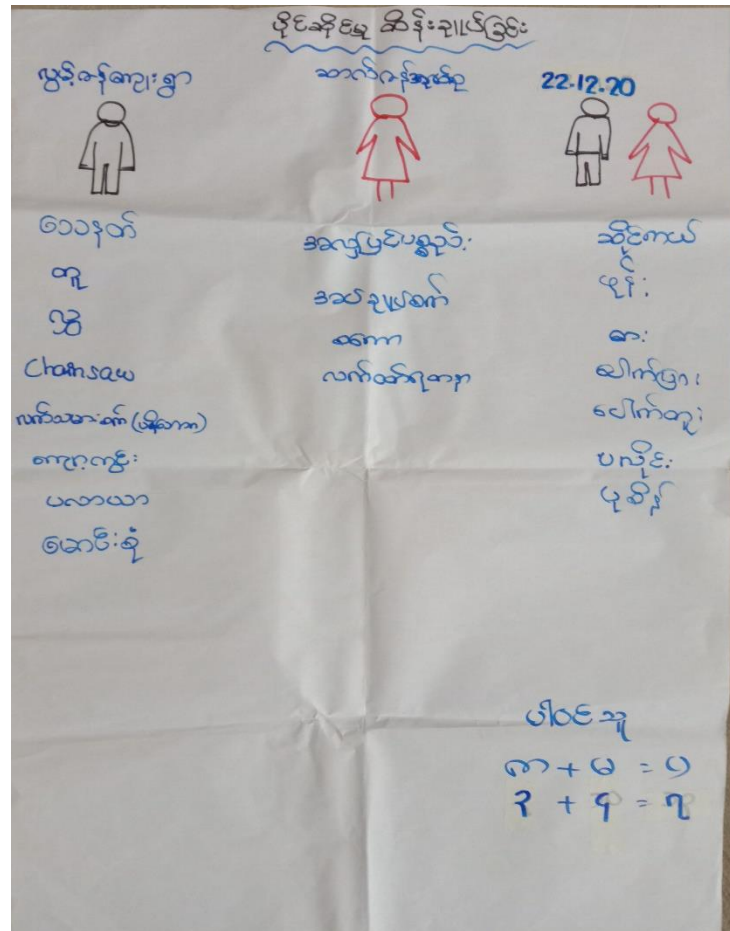 ပိုင်ဆိုင်မှု ထိန်းချုပ်ခြင်း
လွယ်ဂျန်ကျေးရွာ
ဆာက်ဂျန်အုပ်စု
22.12.20
သေနတ်
တူ
လွှ
Chainsaw
လက်သမားစက်
ကျော့ကွင်း
ပလာယာ
မောင်းရုံ
အလှပြင်ပစ္စည်း
အပ်ချုပ်စက်
စကော
လက်ဝတ်ရတနာ
ဆိုင်ကယ်
ဖုန်း
ဓား
ပေါက်ပြား
ပေါက်တူး
ပလိုင်း
ပုဆိန်
ပါဝင်သူ
ကျာ + မ = ပ
၃ + ၄ = ၇